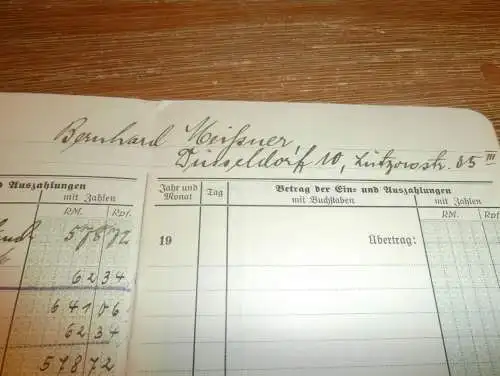 Bernhard Meißner,
Düsseldorf 10, Lützowstr. 35 III
Auszahlungen
mit Zahlen
RM. Rpf.
578 72
62 34
641 06
62 34
578 72
Jahr und Monat Tag Betrag der Ein- und Auszahlungen
mit Buchstaben mit Zahlen
RM. Rpf.
19 Übertrag: